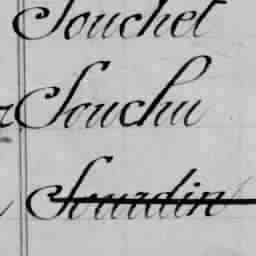 Souchet
Souchu
Sourdin